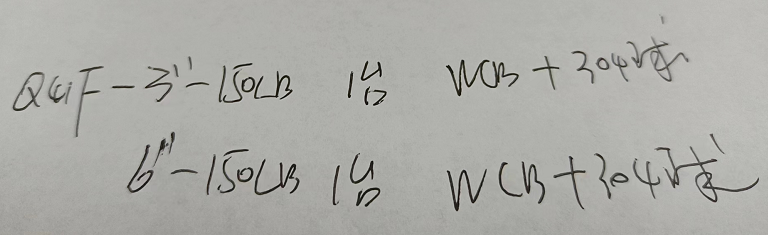 Q41F-3"-150LB 1台 WCB+304球
6"-150LB 1台 WCB+304球